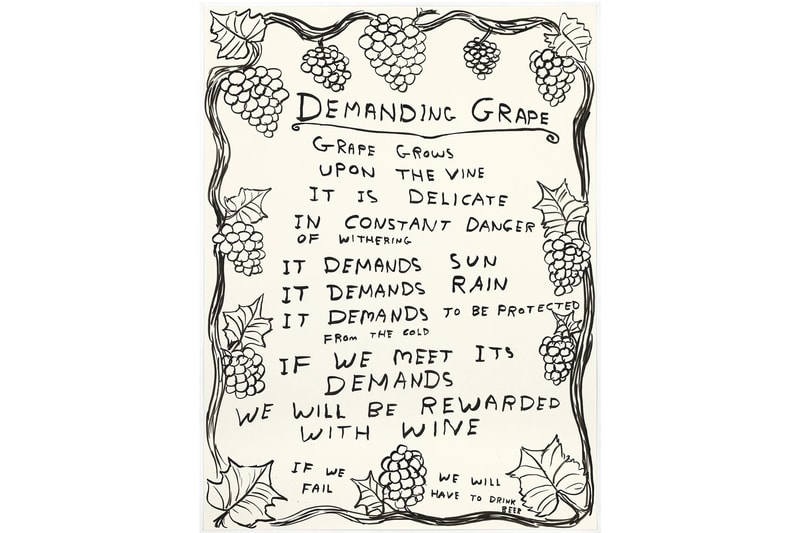 DEMANDING GRAPE
GRAPE GROWS
UPON THE VINE
IT IS DELICATE
IN CONSTANT DANGER
OF WITHERING
IT DEMANDS SUN
IT DEMANDS RAIN
IT DEMANDS TO BE PROTECTED
FROM THE COLD
IF WE MEET ITS
DEMANDS
WE WILL BE REWARDED
WITH WINE
IF WE
FAIL
WE WILL
HAVE TO DRINK
BEER